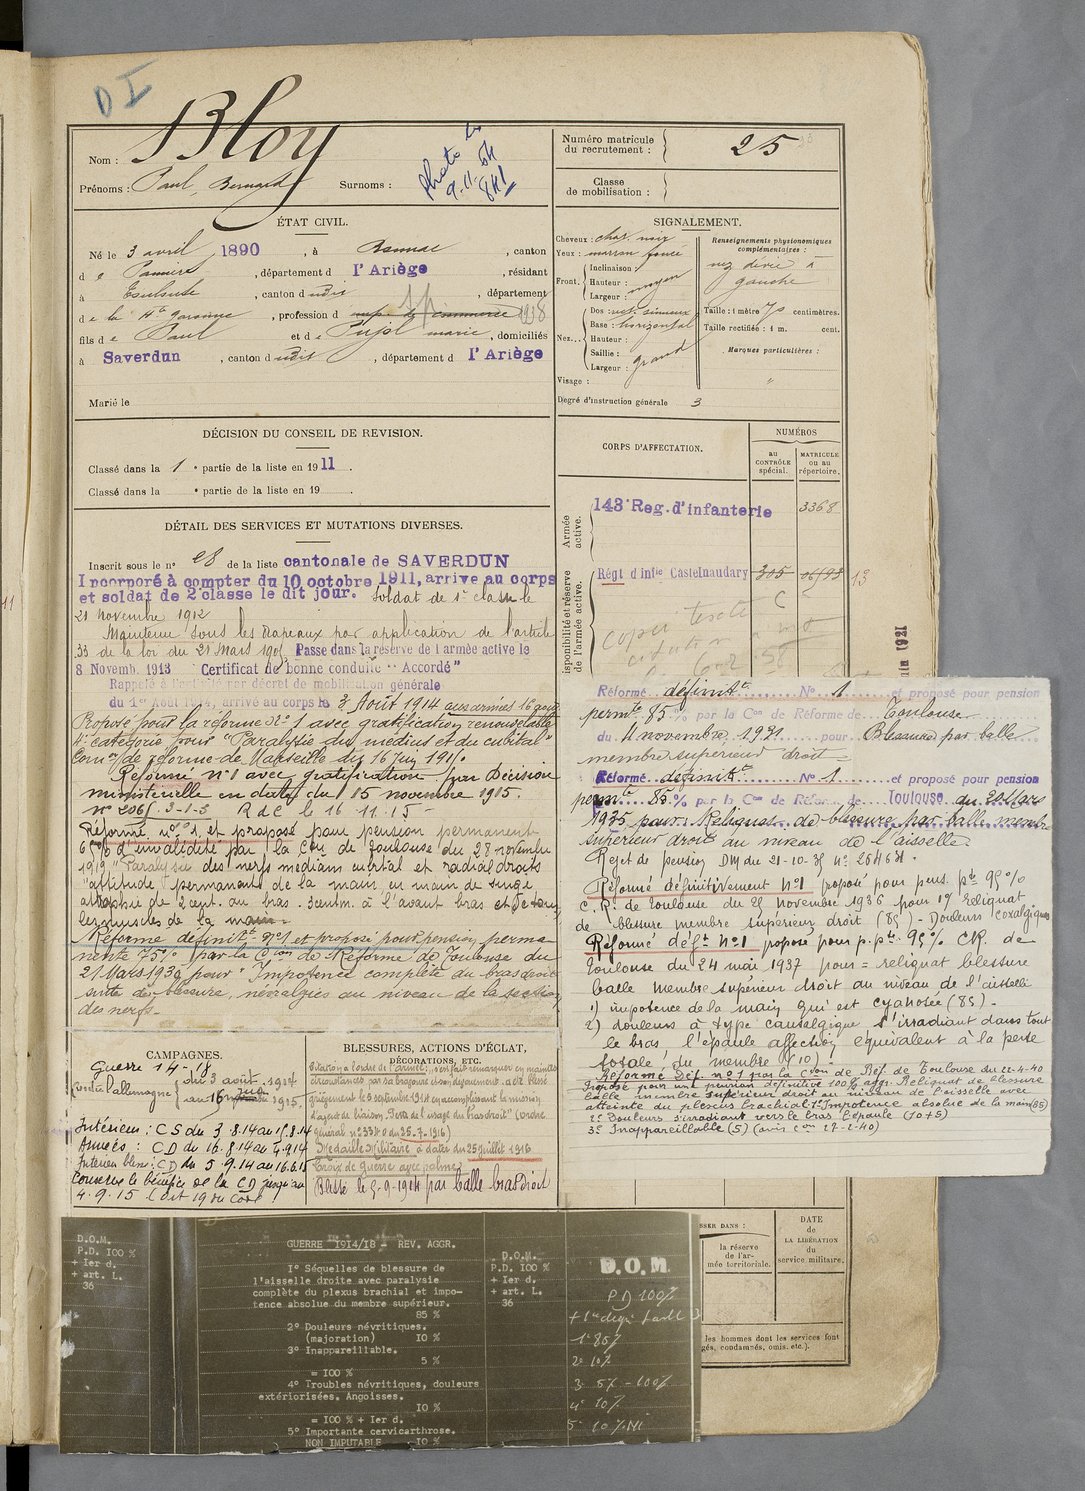 D I
Nom : Bloy
Prénoms : Paul Bernard Surnoms :
Photo le
9.11.54
841
Numéro matricule
du recrutement : 25
Classe
de mobilisation :
ÉTAT CIVIL.
Né le 3 avril 1890, à , canton
d e Pamiers, département d l'Ariège, résidant
à Toulouse, canton d udit, département
d e la Hte Garonne, profession d emp. de commerce
fils d e Paul et d e Pujol marie, domiciliés
à Saverdun, canton d udit, département d l'Ariège
Marié le
SIGNALEMENT.
Cheveux : chat. noir
Yeux : marron foncé
Front. Inclinaison :
Hauteur : moyen
Largeur :
Nez... Dos : rect. sinueux
Base : horizontal
Hauteur :
Saillie : grand
Largeur :
Visage :
Renseignements physionomiques
complémentaires :
nez dévié à
gauche
Taille : 1 mètre 70 centimètres.
Taille rectifiée : 1 m. cent.
Marques particulières :
"
Degré d'instruction générale 3
DÉCISION DU CONSEIL DE REVISION.
Classé dans la 1e partie de la liste en 1911.
Classé dans la e partie de la liste en 19 .
CORPS D'AFFECTATION.
NUMÉROS
au
CONTRÔLE
spécial.
MATRICULE
ou au
répertoire.
Armée
active.
143e Reg. d'infanterie 3368
isponibilité et réserve
de l'armée active.
Régt d'infie Castelnaudary 305 13
copie texte
citation
6-2 58
juin 1921
DÉTAIL DES SERVICES ET MUTATIONS DIVERSES.
Inscrit sous le n° 28 de la liste cantonale de SAVERDUN
Incorporé à compter du 10 octobre 1911, arrive au corps
et soldat de 2e classe le dit jour. Soldat de 1e classe le
21 novembre 1912
Maintenu sous les drapeaux par application de l'article
33 de la loi du 21 Mars 1905 Passe dans la réserve de l'armée active le
8 Novemb. 1913 Certificat de bonne conduite "Accordé"
Rappelé à l'activité par décret de mobilisation générale
du 1er Août 1914, arrivé au corps le 3 Août 1914 aux armées 16 août
Proposé pour la réforme N° 1 avec gratification renouvelable
4e catégorie pour "Paralysie du médius et du cubital"
Com on de réforme de Marseille du 16 juin 1915.
Réformé n°1 avec gratification par Décision
ministérielle en date du 15 novembre 1915.
n° 2065 3-1-3 R d C le 16 11.15
Réformé n° 1, et proposé pour pension permanente
65% d'invalidité par la Con de Toulouse du 28 novembre
1919 "Paralysie des nerfs médian cubital et radial droits
"attitude permanente de la main en main de singe
atrophie de 2 cent. au bras. 3 centm. à l'avant bras et de tous
les muscles de la main.
Réformé définitt n°1 et proposé pour pension perma-
nente 75% par la Cion de Réforme de Toulouse du
21 Mars 1930 pour "Impotence complète du bras droit
suite de blessure, névralgies au niveau de la section
des nerfs.
Réformé définitt N° 1 et proposé pour pension
permte 85 % par la Con de Réforme de Toulouse
du 4 novembre 1931 pour Blessure par balle
membre supérieur droit =
Réformé définitt N° 1 et proposé pour pension
perm. 85 % par la Con de Réform. de Toulouse du 20 Mars
1935 pour: Reliquat de blessure par balle membre
supérieur droit au niveau de l'aisselle.
Rejet de pension DM du 21-10-35 n° 264631.
Réformé définitivement n°1 proposé pour pens. pte 95%
C.R. de Toulouse du 25 novembre 1936 pour 1° reliquat
de blessure membre supérieur droit (85) - Douleurs coxalgiques
Réformé déft n°1 proposé pour p. pte 95% CR. de
Toulouse du 24 mai 1937 pour = reliquat blessure
balle membre supérieur droit au niveau de l'aisselle
1) impotence de la main qui est cyanosée (85).
2) douleurs à type causalgique s'irradiant dans tout
le bras l'épaule affection équivalent à la perte
totale du membre (10)
Réformé Déf. n°1 par la Con de Réf. de Toulouse du 22-4-40
Proposé pour une pension définitive 100% aggr. Reliquat de blessure
balle membre supérieur droit au niveau de l'aisselle avec
atteinte du plexus brachial 1° Impotence absolue de la main (85)
2° Douleurs s'irradiant vers le bras l'épaule (10+5)
3° Inappareillable (5) (avis Con 27-2-40)
CAMPAGNES.
Guerre 14-18
contre l'allemagne du 3 août 1914
au 16 juin 1915.
Intérieur : CS du 3.8.14 au 15.8.14
Armées : CD du 16.8.14 au 4.9.14
Intérieur bles. : CD du 5.9.14 au 16.6.15
Conserve le bénéfice de la CD jusqu'au
4.9.15
BLESSURES, ACTIONS D'ÉCLAT,
DÉCORATIONS, ETC.
Citation à l'ordre de l'armée : s'est fait remarquer en maintes
circonstances par sa bravoure et son dévouement. a été blessé
grièvement le 5 septembre 1914 en accomplissant la mission
d'agent de liaison. Perte de l'usage du bras droit" (ordre
général n° 3340 du 25-7-1916)
Médaille Militaire à dater du 25 juillet 1916
Croix de guerre avec palme
Blessé le 5-9-1914 par balle bras droit
SSER DANS :
la réserve
de l'ar-
mée territoriale.
DATE
de
LA LIBÉRATION
du
service militaire.
les hommes dont les services font
gés, condamnés, omis. etc.).
D.O.M.
P.D. 100 %
+ Ier d.
+ art. L.
36
GUERRE 1914/18 - REV. AGGR.
1° Séquelles de blessure de
l'aisselle droite avec paralysie
complète du plexus brachial et impo-
tence absolue du membre supérieur.
85 %
2° Douleurs névritiques.
(majoration) 10 %
3° Inappareillable.
5 %
= 100 %
4° Troubles névritiques, douleurs
extériorisées. Angoisses.
10 %
= 100 % + Ier d.
5° Importante cervicarthrose.
NON IMPUTABLE 10 %
D.O.M.
P.D. 100 %
+ Ier d.
+ art. L.
36
D.O.M.
PD 100%
1° 85%
2° 10%
3° 5% - 100%
4° 10%
5° 10% NI